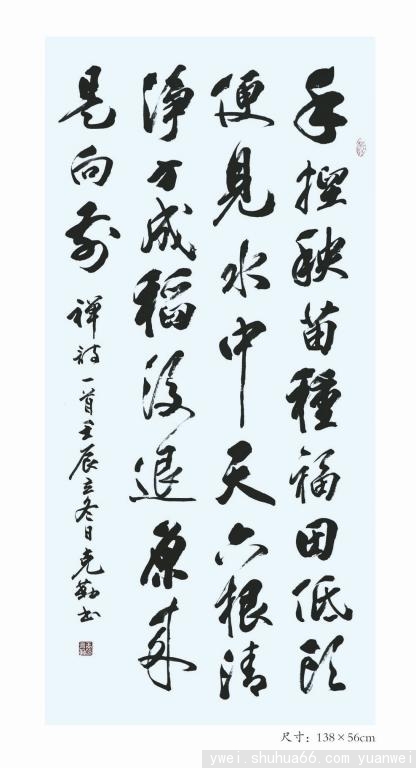 手捏秧苗種福田低头
便見水中天六根清
淨方成稻後退原来
是向前 禅詩一首壬辰立冬日克勤书
尺寸：138×56cm
ywei.shuhua66.com yuanwei